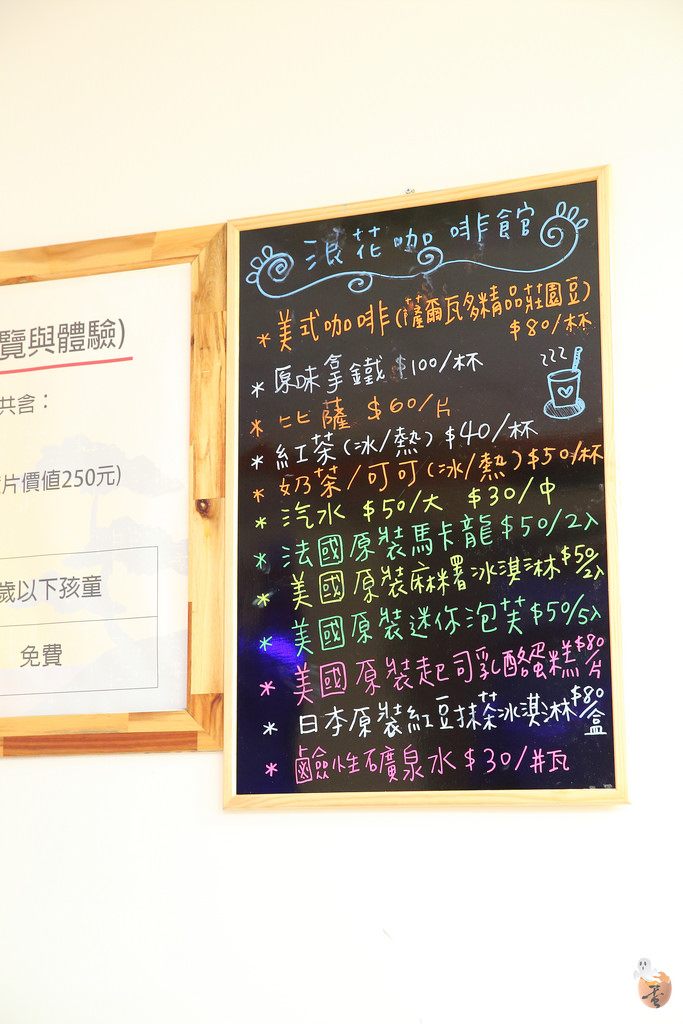 覽與體驗)
共含：
片價值250元)
歲以下孩童
免費
浪花咖啡館
* 美式咖啡(薩爾瓦多精品莊園豆)
$80/杯
* 原味拿鐵 $100/杯
* 比薩 $60/片
* 紅茶(冰/熱) $40/杯
* 奶茶/可可(冰/熱) $50/杯
* 汽水 $50/大 $30/中
* 法國原裝馬卡龍 $50/2入
* 美國原裝麻糬冰淇淋 $50/2入
* 美國原裝迷你泡芙 $50/5入
* 美國原裝起司乳酪蛋糕 $80/片
* 日本原裝紅豆抹茶冰淇淋 $80/盒
* 鹼性礦泉水 $30/瓶